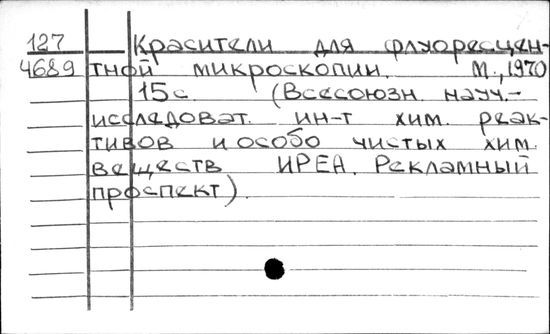 127 Красители для флуоресцен-
4689 тной микроскопии. М., 1970
15с. (Всесоюзн. науч.-
исследоват. ин-т хим. реак-
тивов и особо чистых хим.
веществ ИРЕА. Рекламный
проспект).